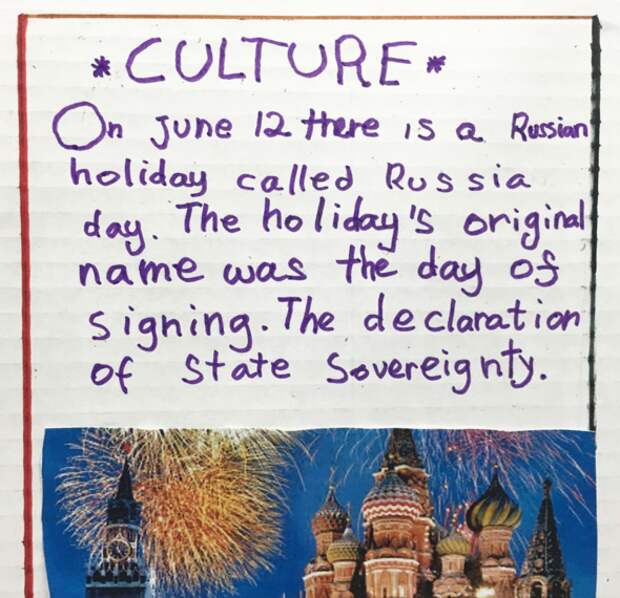 *CULTURE*
On June 12 there is a Russian
holiday called Russia
day. The holiday's original
name was the day of
signing. The declaration
of State Sovereignty.